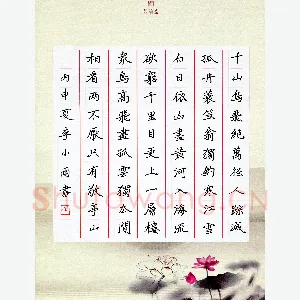 千山鳥飛絕萬徑人蹤滅
孤舟蓑笠翁獨釣寒江雪
白日依山盡黃河入海流
欲窮千里目更上一層樓
眾鳥高飛盡孤雲獨去閒
相看兩不厭只有敬亭山
丙申夏亭小雨書
Shufawang.CN